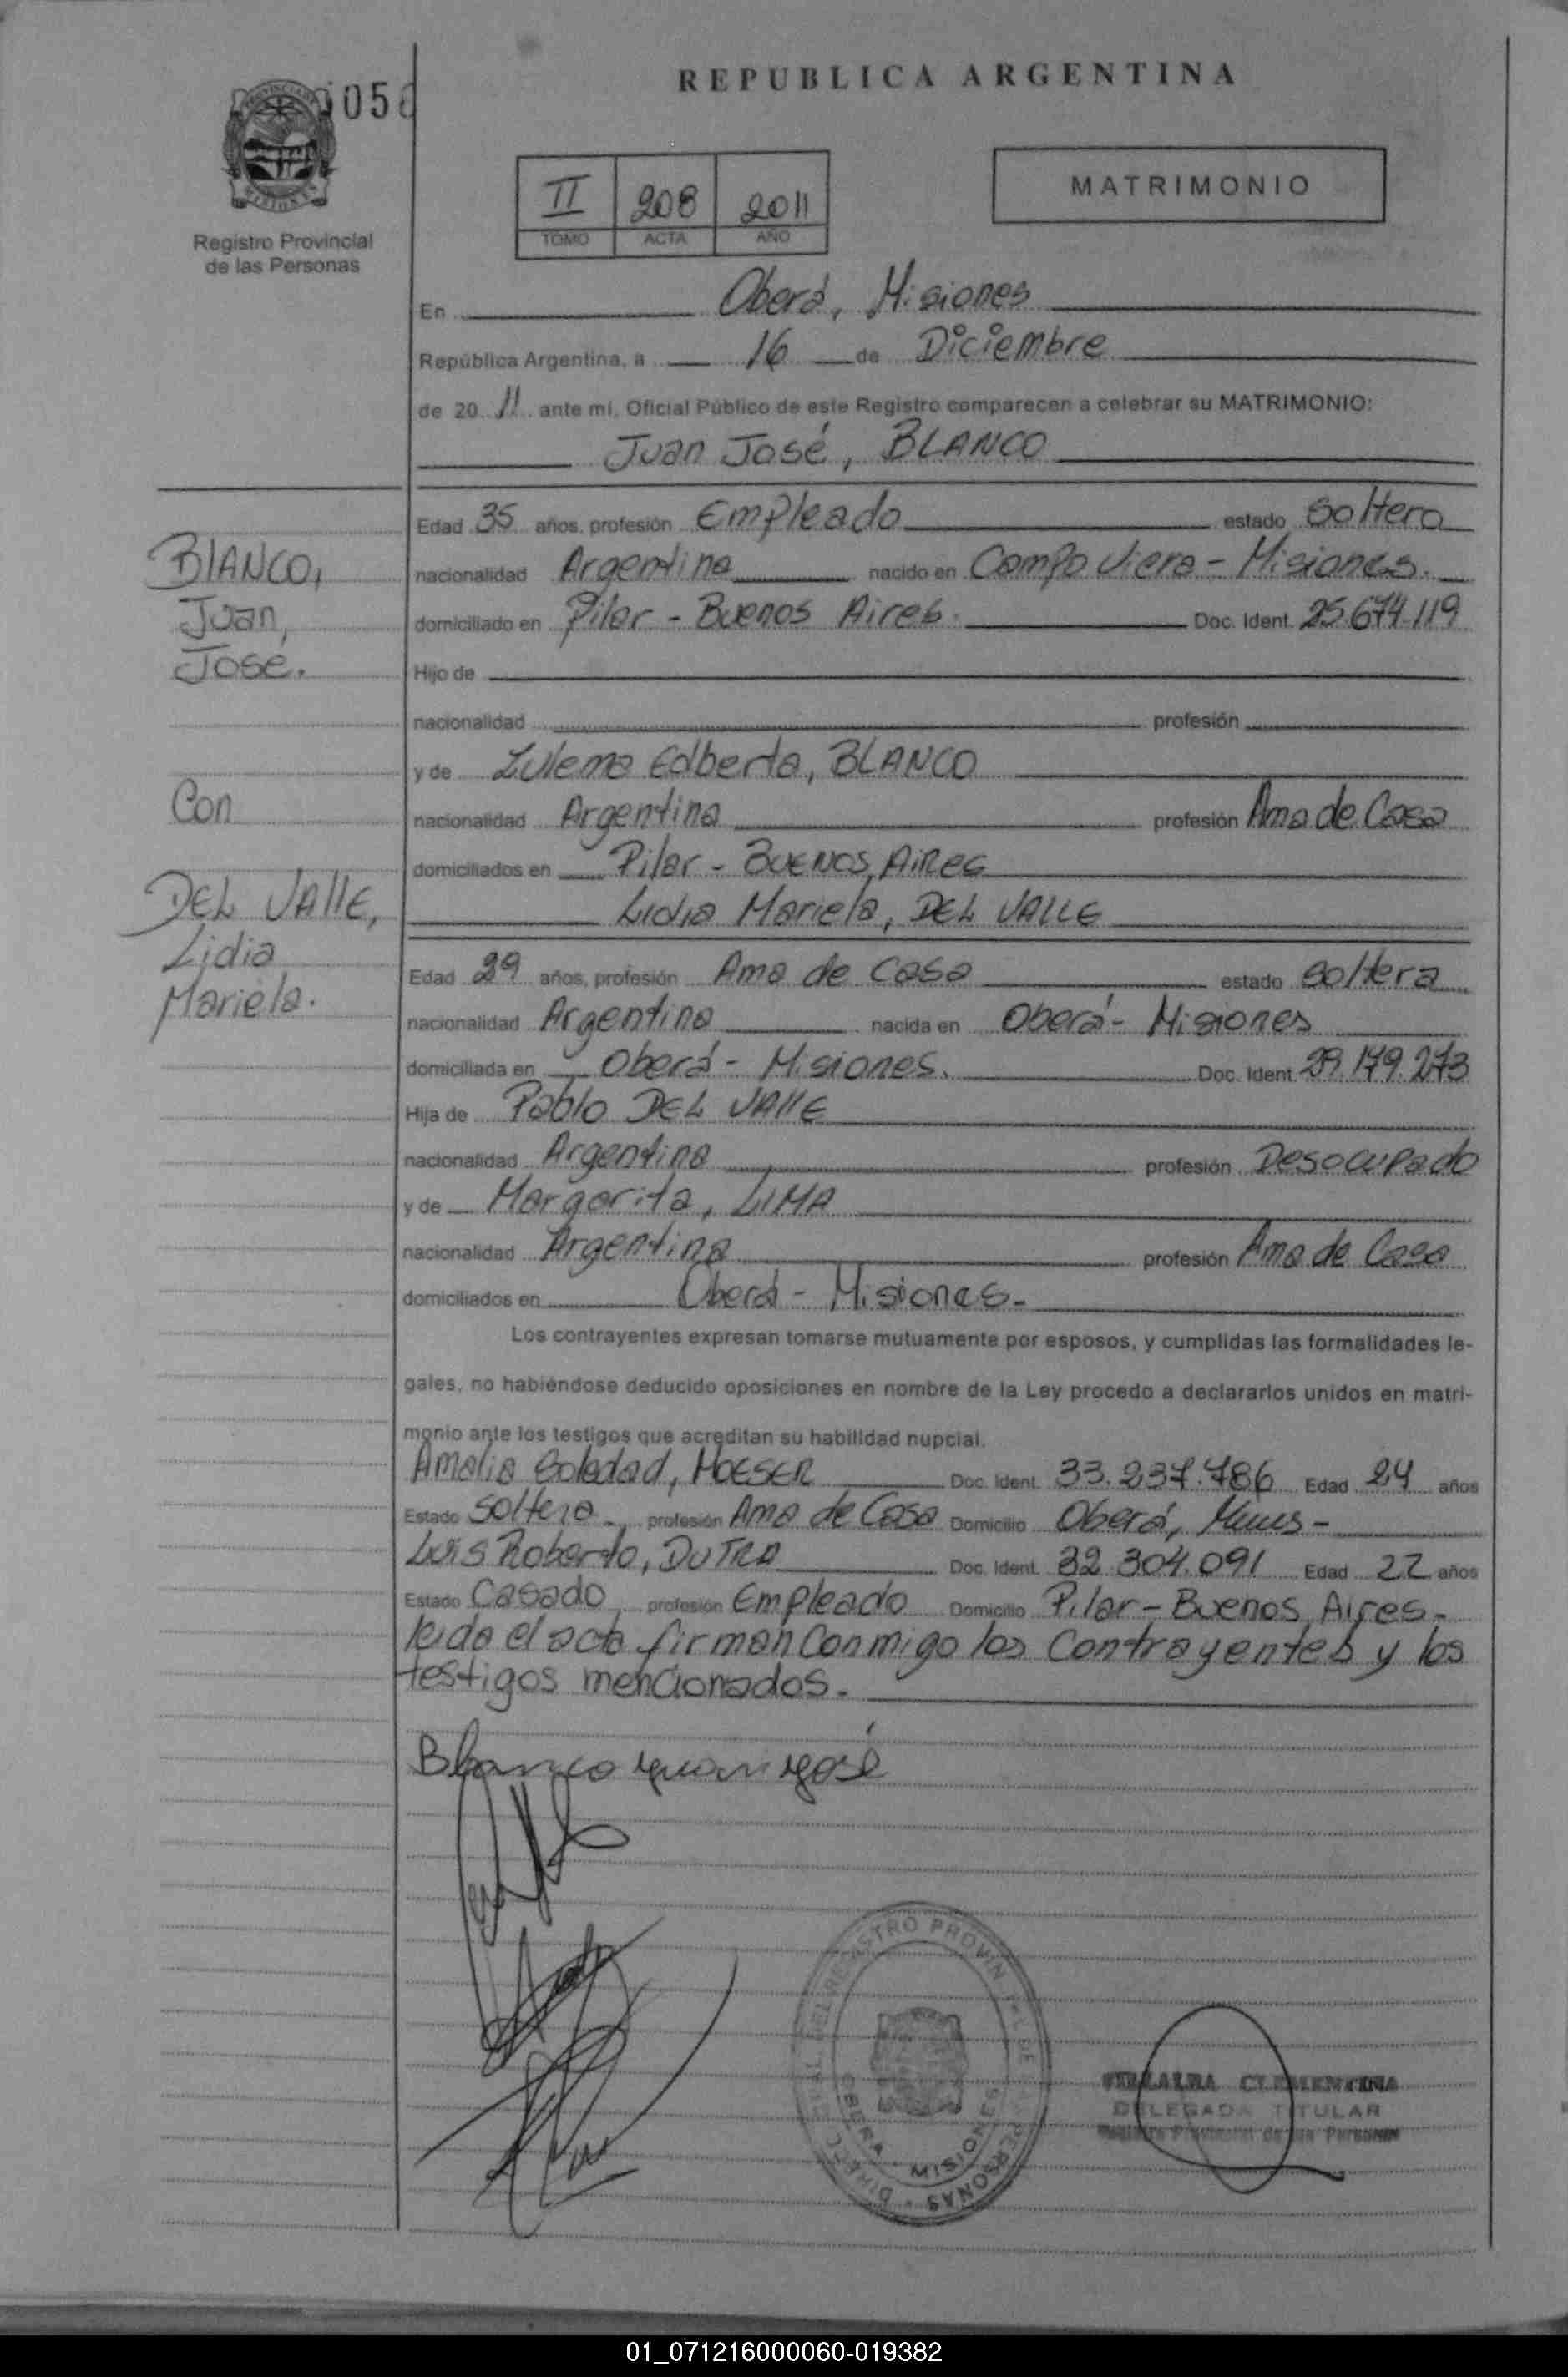 REPUBLICA ARGENTINA
056
II 208 2011
TOMO ACTA AÑO
MATRIMONIO
Registro Provincial
de las Personas
En Oberá, Misiones
República Argentina, a 16 de Diciembre
de 2011 ante mí, Oficial Público de este Registro comparecen a celebrar su MATRIMONIO:
Juan José, BLANCO
Edad 35 años, profesión Empleado estado Soltero
nacionalidad Argentina nacido en Campo Viera - Misiones.
domiciliado en Pilar - Buenos Aires. Doc. Ident. 25.674.119
Hijo de
nacionalidad profesión
y de Zulema Edberta, BLANCO
nacionalidad Argentina profesión Ama de Casa
domiciliados en Pilar - BUENOS AIRES
Lidia Mariela, DEL VALLE
Edad 29 años, profesión Ama de Casa estado soltera
nacionalidad Argentina nacida en Oberá - Misiones
domiciliada en Oberá - Misiones. Doc. Ident. 29.179.273
Hija de Pablo DEL VALLE
nacionalidad Argentina profesión Desocupado
y de Margarita, LIMA
nacionalidad Argentina profesión Ama de Casa
domiciliados en Oberá - Misiones -
Los contrayentes expresan tomarse mutuamente por esposos, y cumplidas las formalidades le-
gales, no habiéndose deducido oposiciones en nombre de la Ley procedo a declararlos unidos en matri-
monio ante los testigos que acreditan su habilidad nupcial.
Amalia Soledad, MOESER Doc. Ident. 33.237.786 Edad 24 años
Estado Soltera profesión Ama de Casa Domicilio Oberá, Mnes -
Luis Roberto, DUTRA Doc. Ident. 32.304.091 Edad 22 años
Estado Casado profesión Empleado Domicilio Pilar - Buenos Aires -
leida el acta firman conmigo los contrayentes y los
testigos mencionados.
BLANCO,
Juan,
José.
Con
DEL VALLE,
Lidia
Mariela.
Blanco juan josé
DIRECC. GRAL. DEL REGISTRO PROVINCIAL DE LAS PERSONAS
OBERA - MISIONES
VILLALBA CLEMENTINA
DELEGADA TITULAR
Registro Provincial de las Personas
01_071216000060-019382